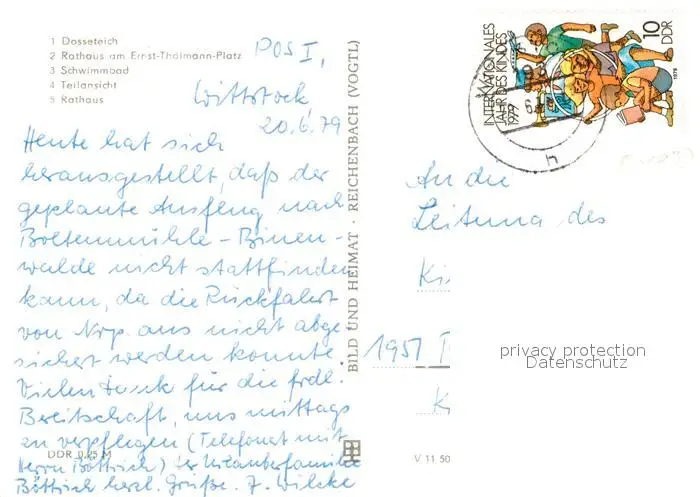 1 Dosseteich
2 Rathaus am Ernst-Thälmann-Platz
3 Schwimmbad
4 Teilansicht
5 Rathaus
POS I,
Wittstock,
20.6.79
Heute hat sich
herausgestellt, daß der
geplante Ausflug nach
Boltenmühle-Binen-
walde nicht stattfinden
kann, da die Rückfahrt
von Nrp. aus nicht abge-
sichert werden konnte.
Vielen Dank für die frdl.
Bereitschaft, uns mittags
zu verpflegen (Telefonat mit
Herrn Böttrich) der Urlauberfamilie
Böttrich herzl. Grüße. J. Wilcke
DDR 0,25 M
BILD UND HEIMAT · REICHENBACH (VOGTL)
INTERNATIONALES
JAHR DES KINDES
1979
10
DDR
1979
An die
Leitung des
Ki
1951
K
V 11 50
privacy protection
Datenschutz